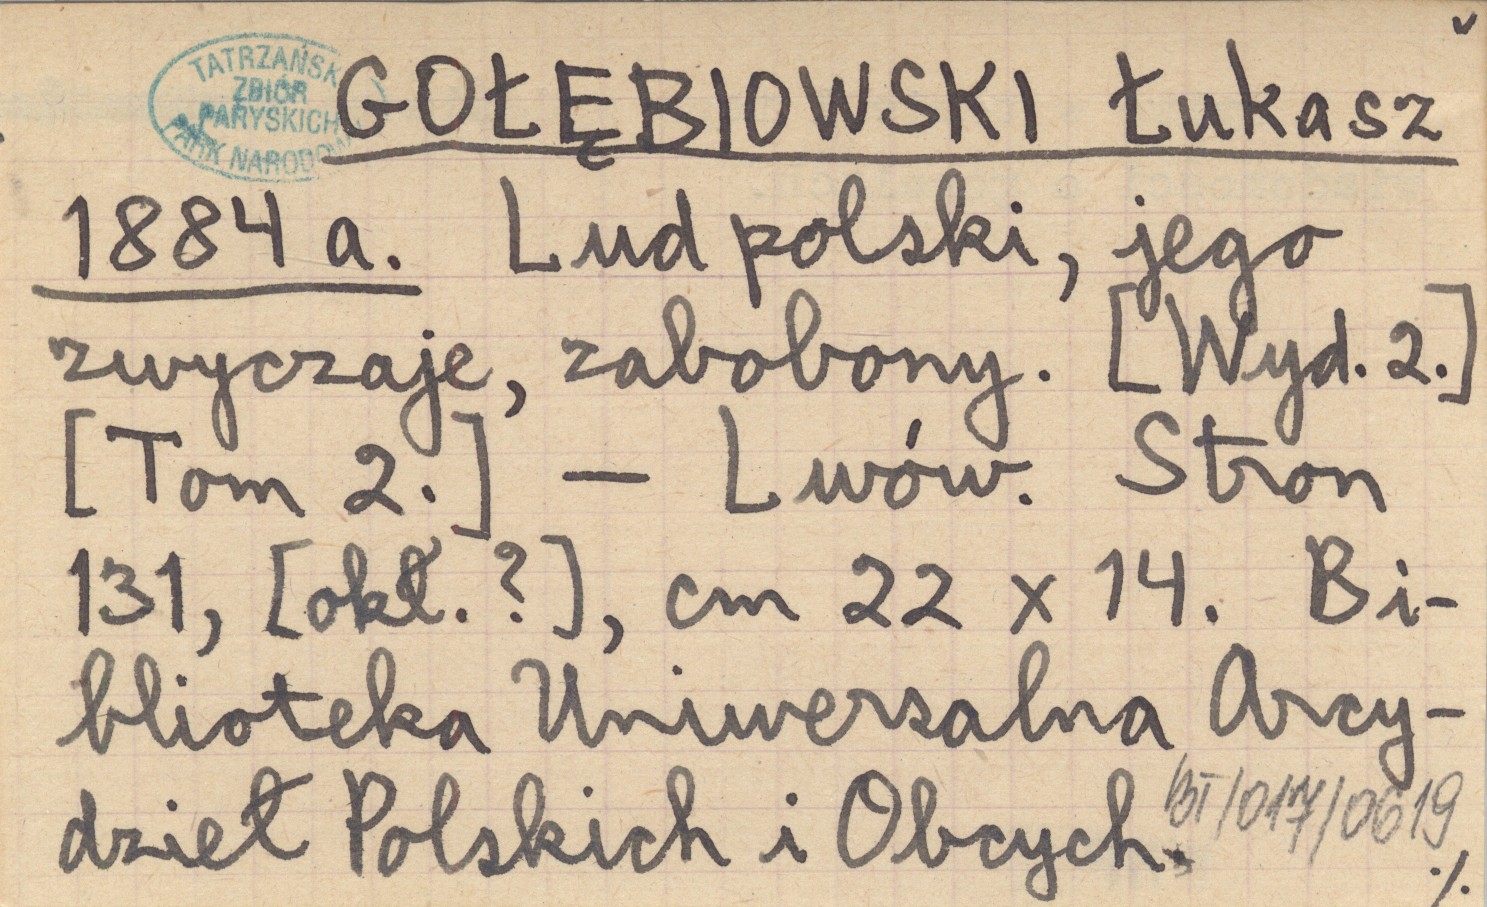 GOŁĘBIOWSKI Łukasz
TATRZAŃSK
ZBIÓR
PARYSKICH
PARK NARODOW
1884 a. Lud polski, jego
zwyczaje, zabobony. [Wyd. 2.]
[Tom 2.] — Lwów. Stron
131, [okł. ?], cm 22 x 14. Bi-
blioteka Uniwersalna Arcy-
dzieł Polskich i Obcych.
BT/017/0619
./.